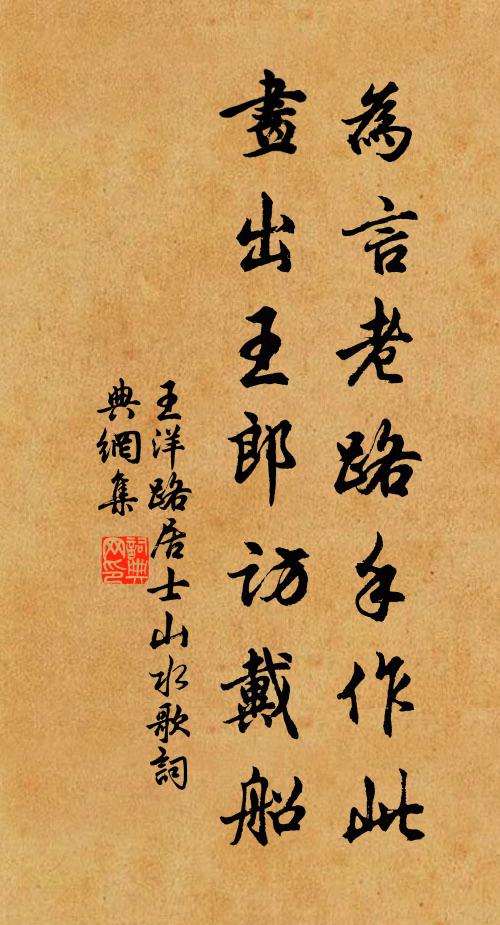 為言老路手作此
畫出王郎訪戴船
王洋路居士山水歌詞
典網集
詞典
网印